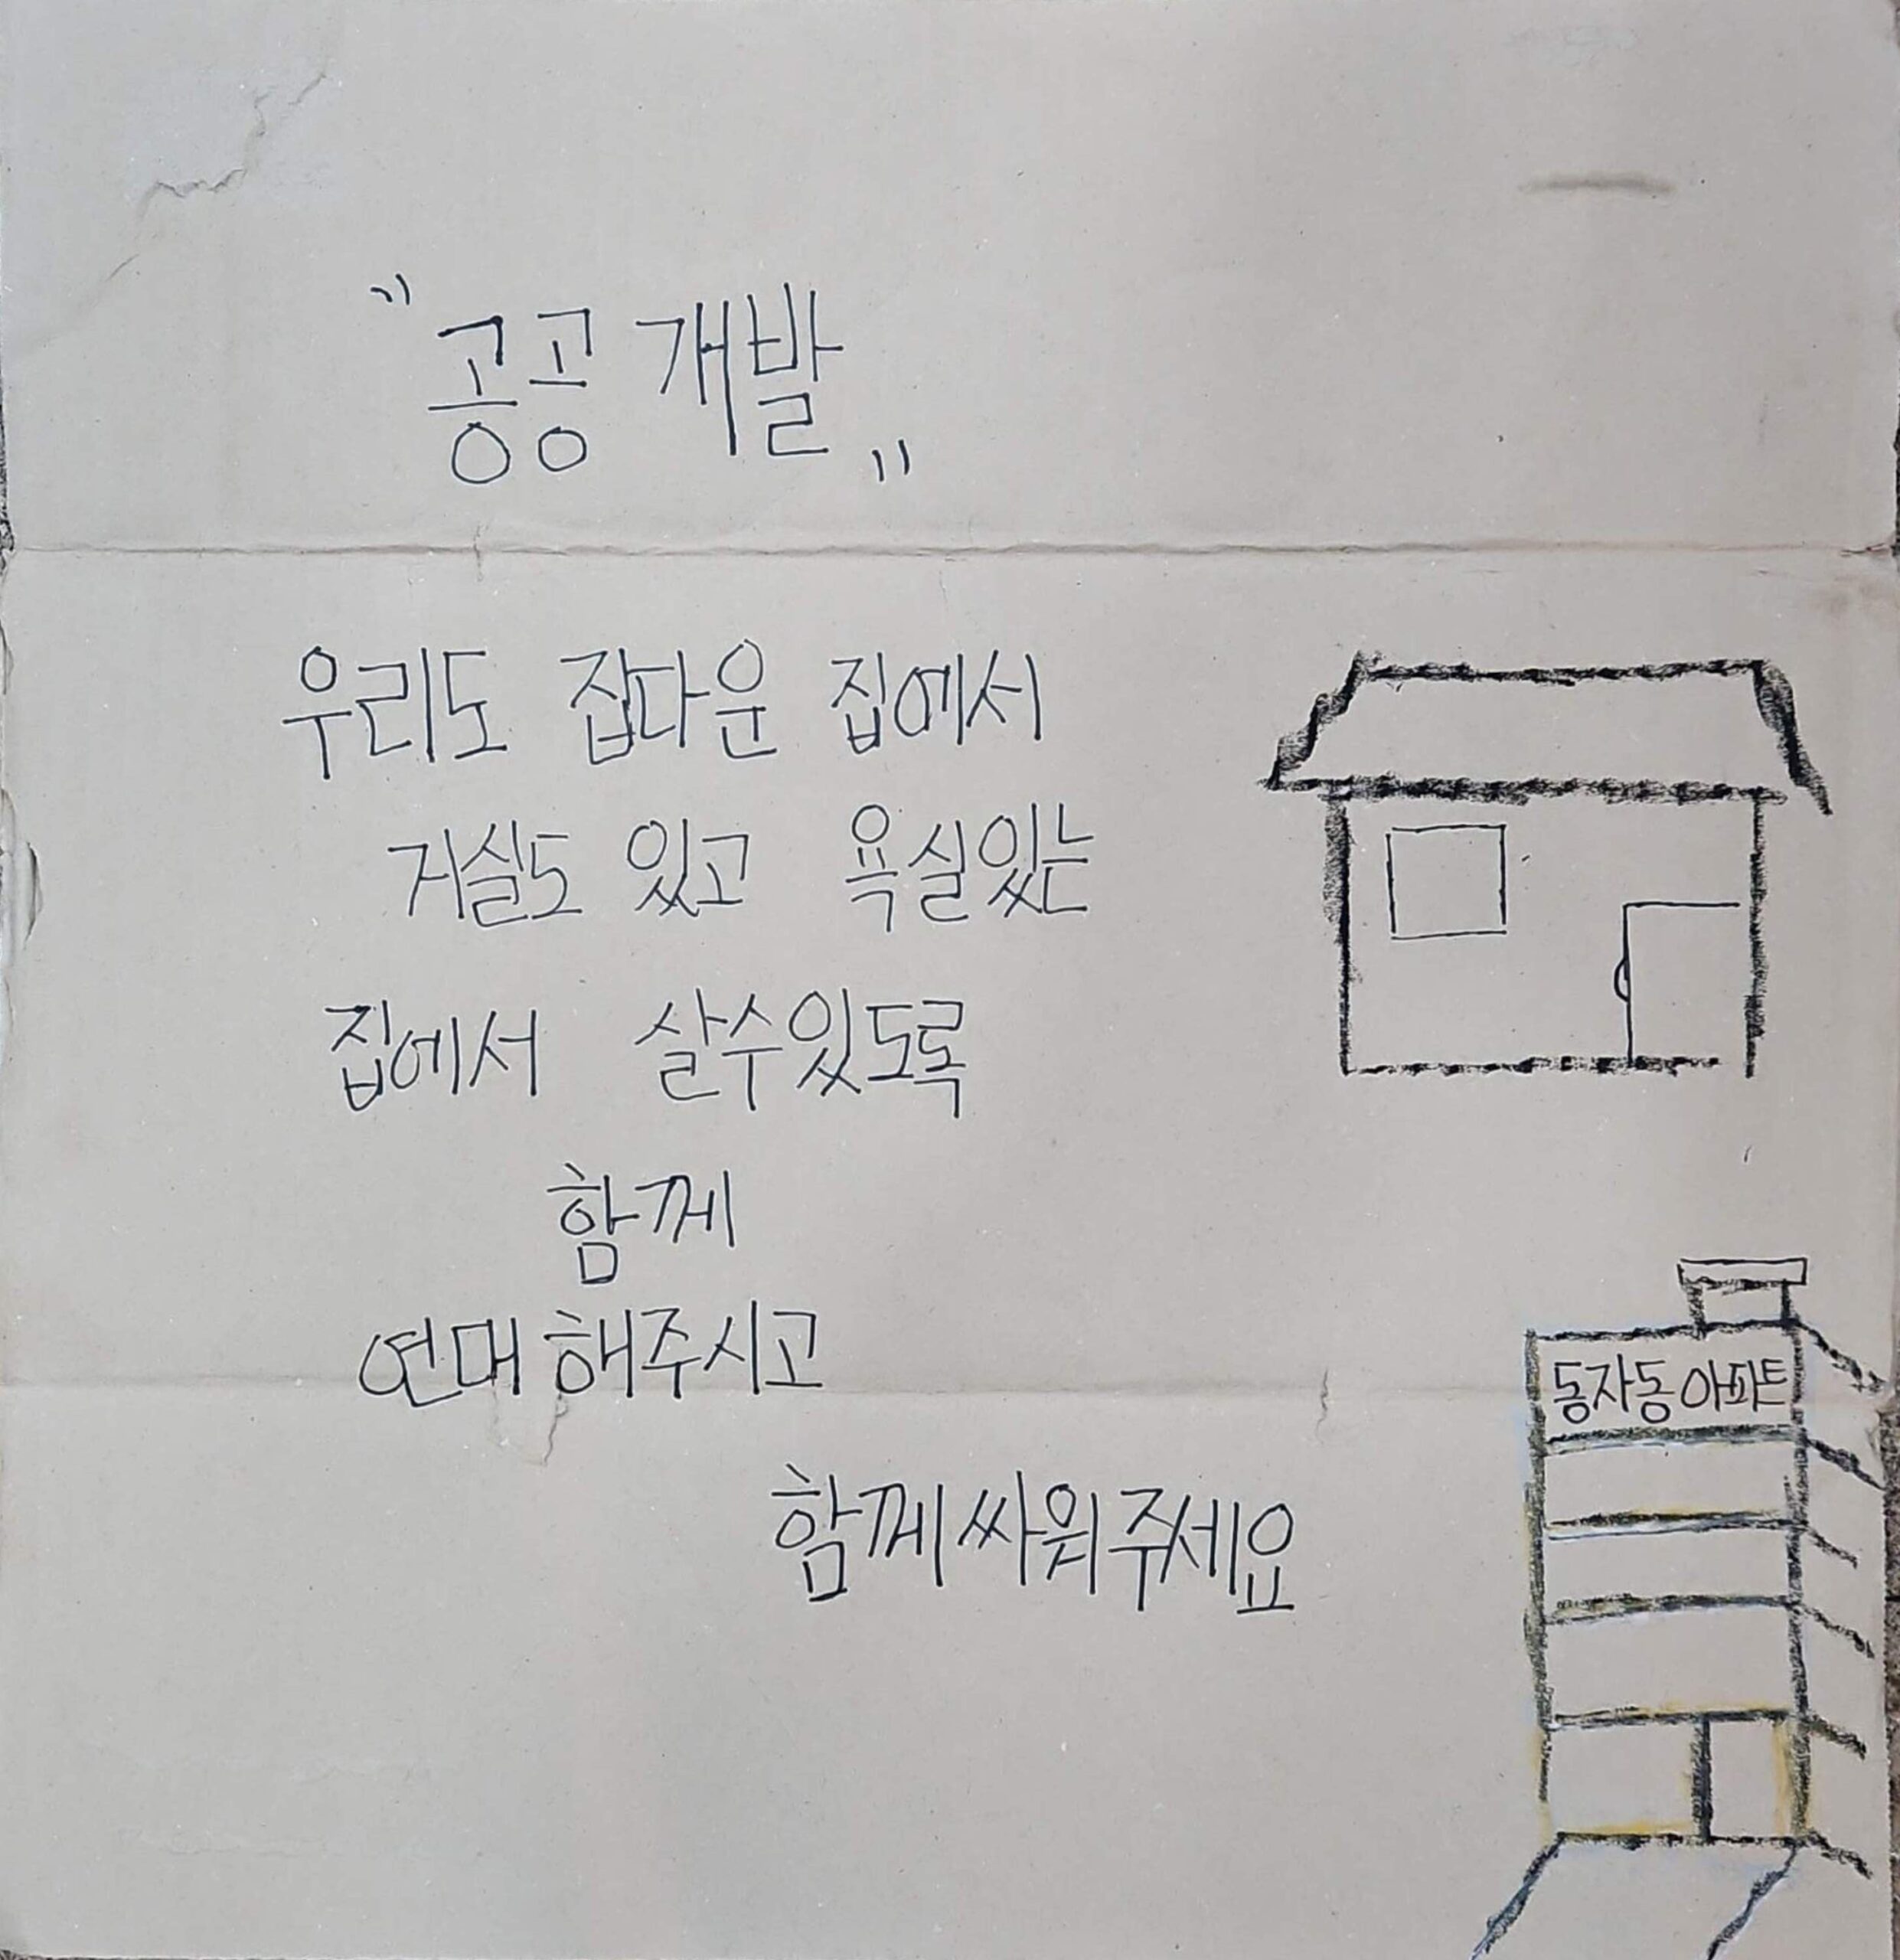 "공공 개발"
우리도 집다운 집에서
거실도 있고 욕실있는
집에서 살수있도록
함께
연대 해주시고
함께 싸워 주세요
동자동 아파트